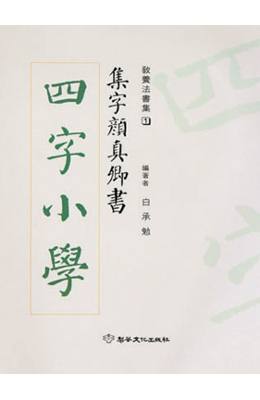 敎養法書集 1
集字顔真卿書
四字小學
編著者 白承勉
梨谷文化出版社